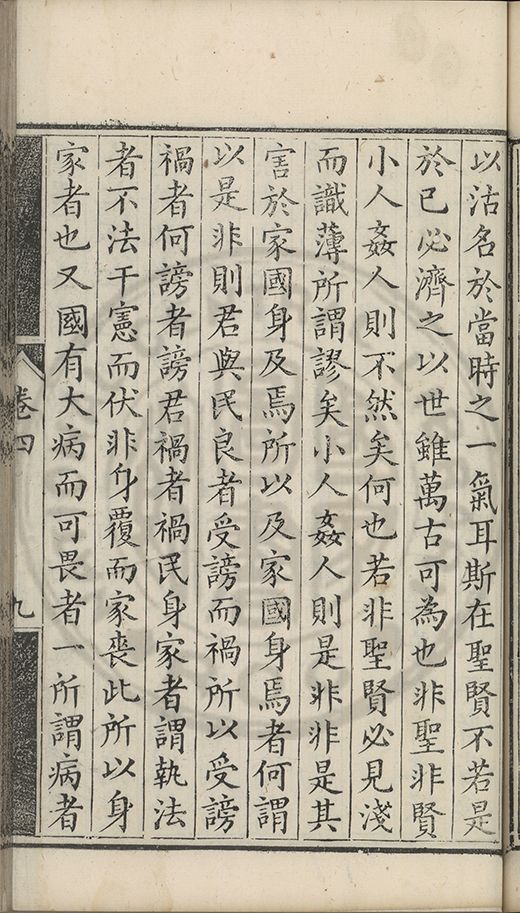 以沽名於當時之一氣耳斯在聖賢不若是
於已必濟之以世雖萬古可為也非聖非賢
小人姦人則不然矣何也若非聖賢必見淺
而識薄所謂謬矣小人姦人則是非非是其
害於家國身及焉所以及家國身焉者何謂
以是非則君與民良者受謗而禍所以受謗
禍者何謗者謗君禍者禍民身家者謂執法
者不法干憲而伏非身覆而家喪此所以身
家者也又國有大病而可畏者一所謂病者
卷四
九